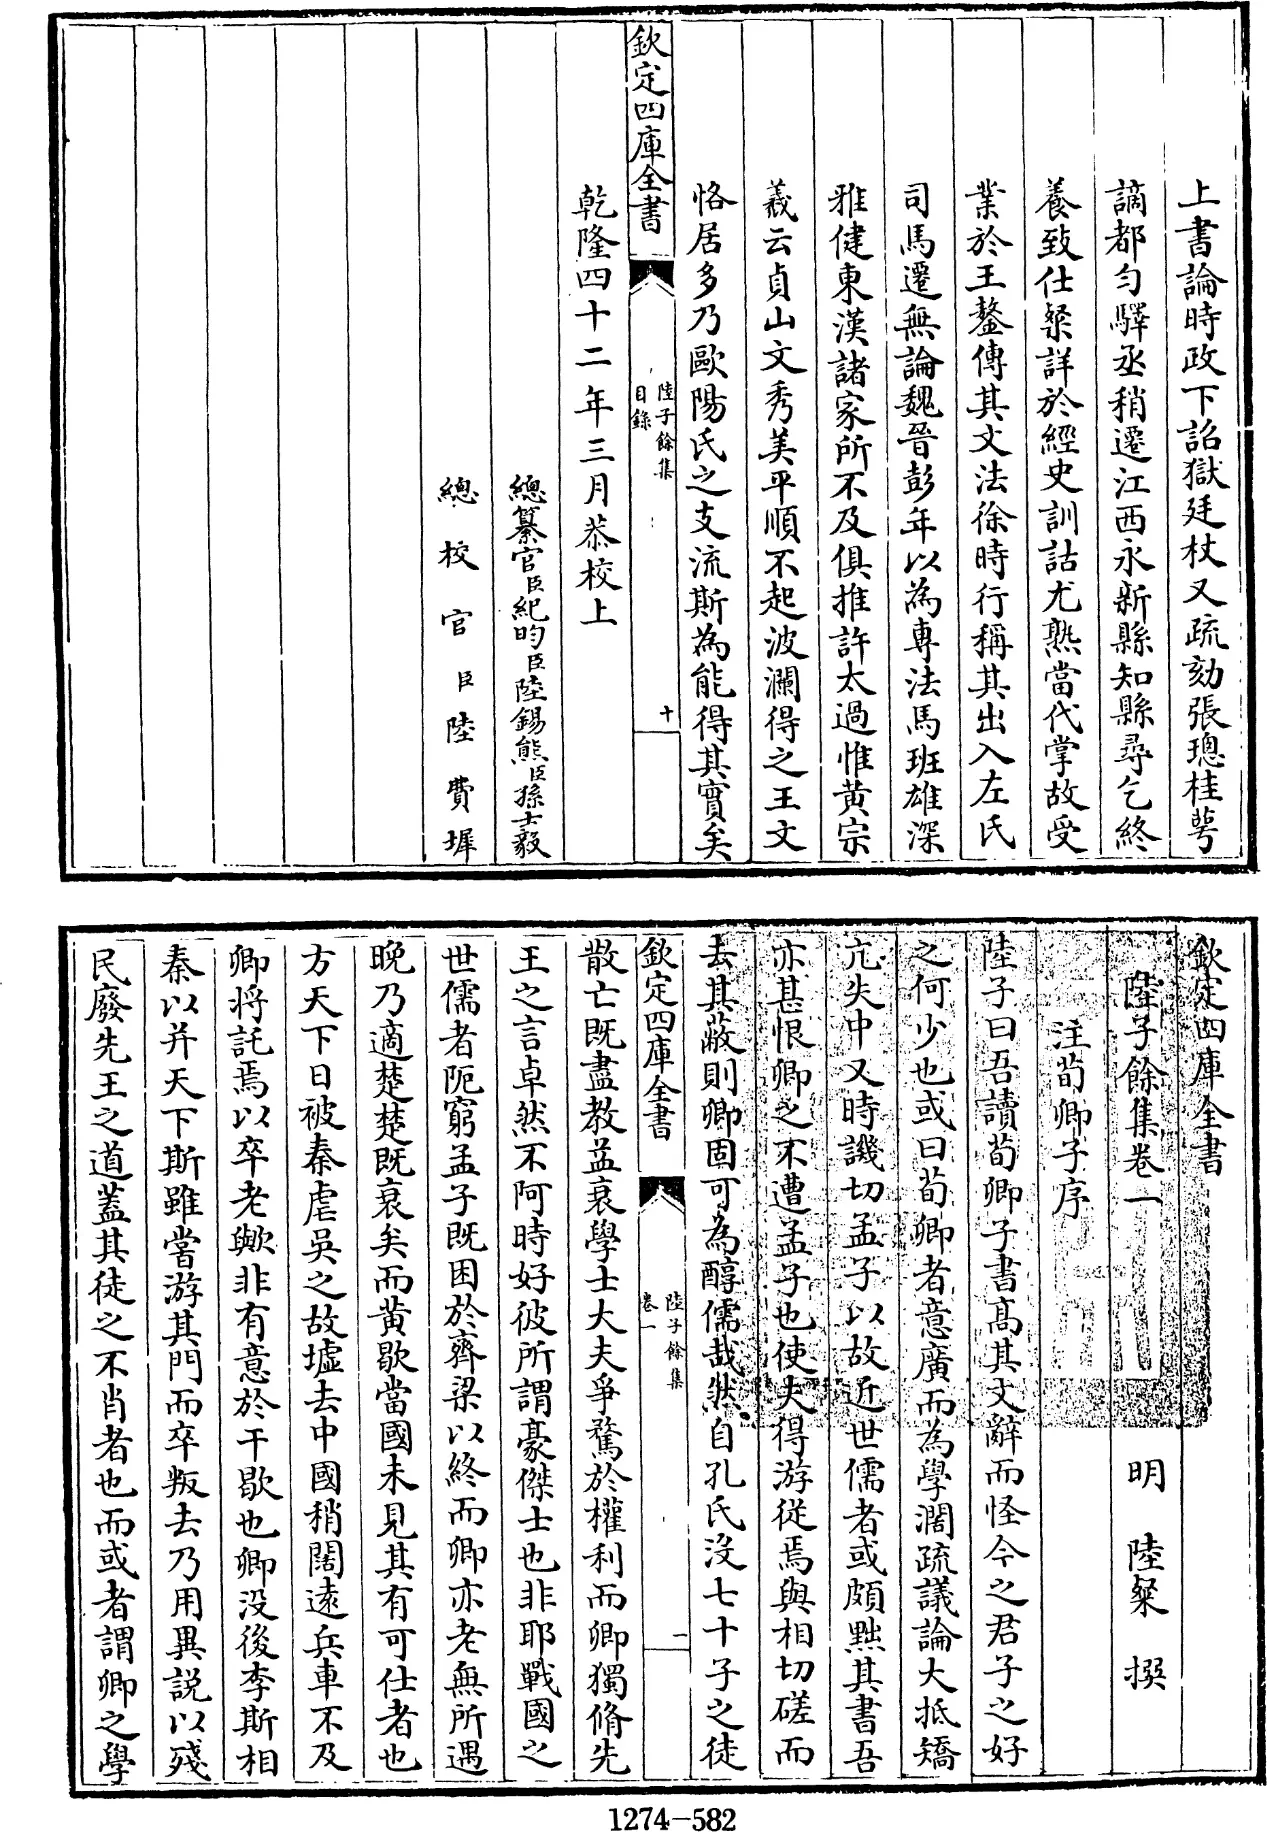 上書論時政下詔獄廷杖又疏劾張璁桂萼
謫都勻驛丞稍遷江西永新縣知縣尋乞終
養致仕粲詳於經史訓詁尤熟當代掌故受
業於王鏊傳其文法徐時行稱其出入左氏
司馬遷無論魏晉彭年以為專法馬班雄深
雅健東漢諸家所不及俱推許太過惟黄宗
羲云貞山文秀美平順不起波瀾得之王文
恪居多乃歐陽氏之支流斯為能得其實矣
欽定四庫全書
陸子餘集
目錄
十
乾隆四十二年三月恭校上
總纂官臣紀昀臣陸錫熊臣孫士毅
總校官臣陸費墀
欽定四庫全書
陸子餘集卷一
明 陸粲 撰
注荀卿子序
陸子曰吾讀荀卿子書髙其文辭而怪今之君子之好
之何少也或曰荀卿者意廣而為學濶疏議論大抵矯
亢失中又時譏切孟子以故近世儒者或頗黜其書吾
亦甚恨卿之不遭孟子也使夫得游從焉與相切磋而
去其蔽則卿固可為醇儒哉然自孔氏沒七十子之徒
欽定四庫全書
陸子餘集
卷一
一
散亡既盡教益衰學士大夫爭騖於權利而卿獨脩先
王之言卓然不阿時好彼所謂豪傑士也非耶戰國之
世儒者阨窮孟子既困於齊梁以終而卿亦老無所遇
晩乃適楚楚既衰矣而黄歇當國未見其有可仕者也
方天下日被秦虐吳之故墟去中國稍闊逺兵車不及
卿將託焉以卒老歟非有意於干歇也卿没後李斯相
秦以并天下斯雖嘗游其門而卒叛去乃用異説以殘
民廢先王之道蓋其徒之不肖者也而或者謂卿之學
1274-582